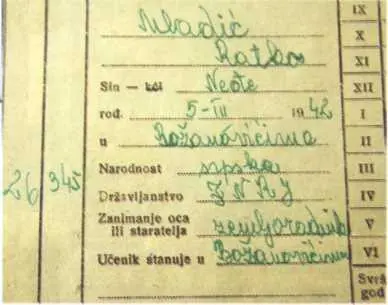 Mladić
Ratko
Sin — kći Neđe
rođ. 5-III 1942
u Božanovićima
Narodnost srpska
Državljanstvo FNRJ
Zanimanje oca
ili staratelja zemljoradnik
Učenik stanuje u Božanovićima
26 345
IX
X
XI
XII
I
II
III
IV
V
VI
Svrš
god